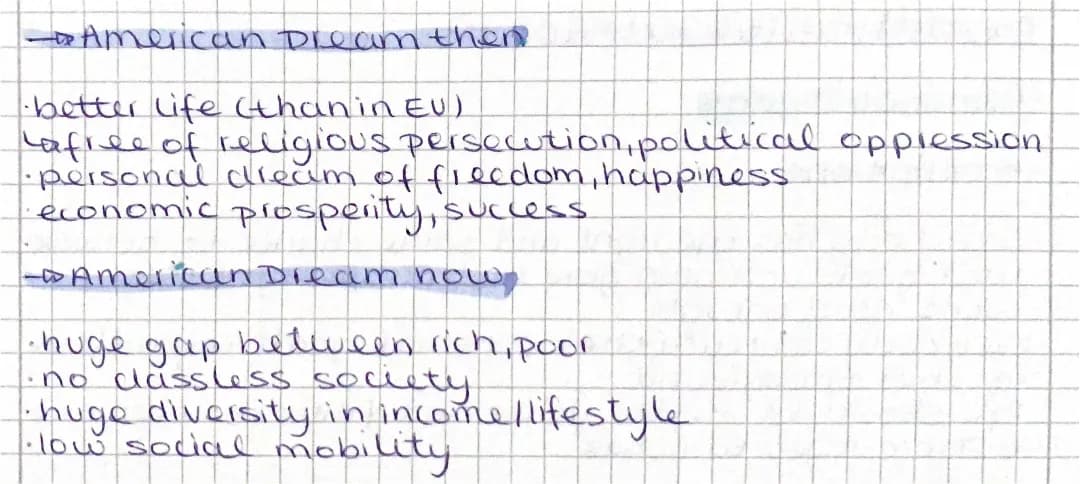 →American Dream then
·better life (than in EU)
↳free of religious persecution, political oppression
·personal dream of freedom, happiness
·economic prosperity, success
·
→American Dream now
·huge gap between rich, poor
·no classless society
·huge diversity in income/lifestyle
·low social mobility